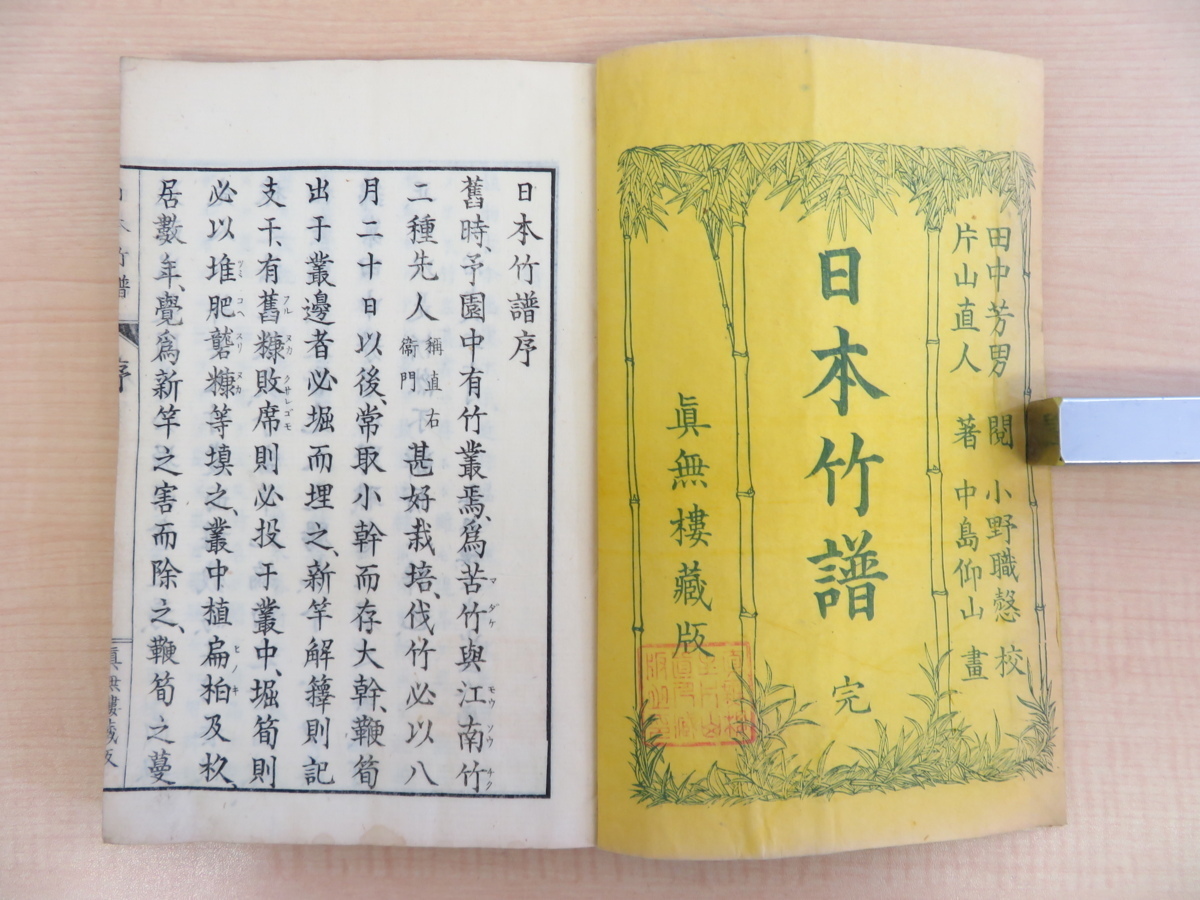 田中芳男 閲 小野職愨 校
片山直人 著 中島仰山 畫
日本竹譜 完
眞無樓藏版
日本竹譜序
舊時、予園中有竹叢焉、爲苦竹マダケ與江南竹モウソウチク
二種先人稱直右衞門甚好栽培、伐竹必以八
月二十日以後、常取小幹而存大幹、鞭筍
出于叢邊者必堀而埋之、新竿解籜則記
支干、有舊フル糠ヌカ敗席クサレゴモ則必投于叢中、堀筍則
必以堆ツミ肥コヘ礱スリ糠ヌカ等塡之、叢中植扁柏ヒノキ及杉、
居數年、覺爲新竿之害而除之、鞭筍之蔓
日本竹譜 序 眞無樓藏版